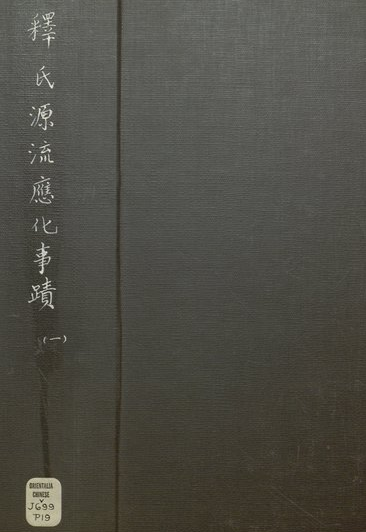 釋氏源流應化事蹟
(一)
ORIENTALIA
CHINESE
V
J699
P19